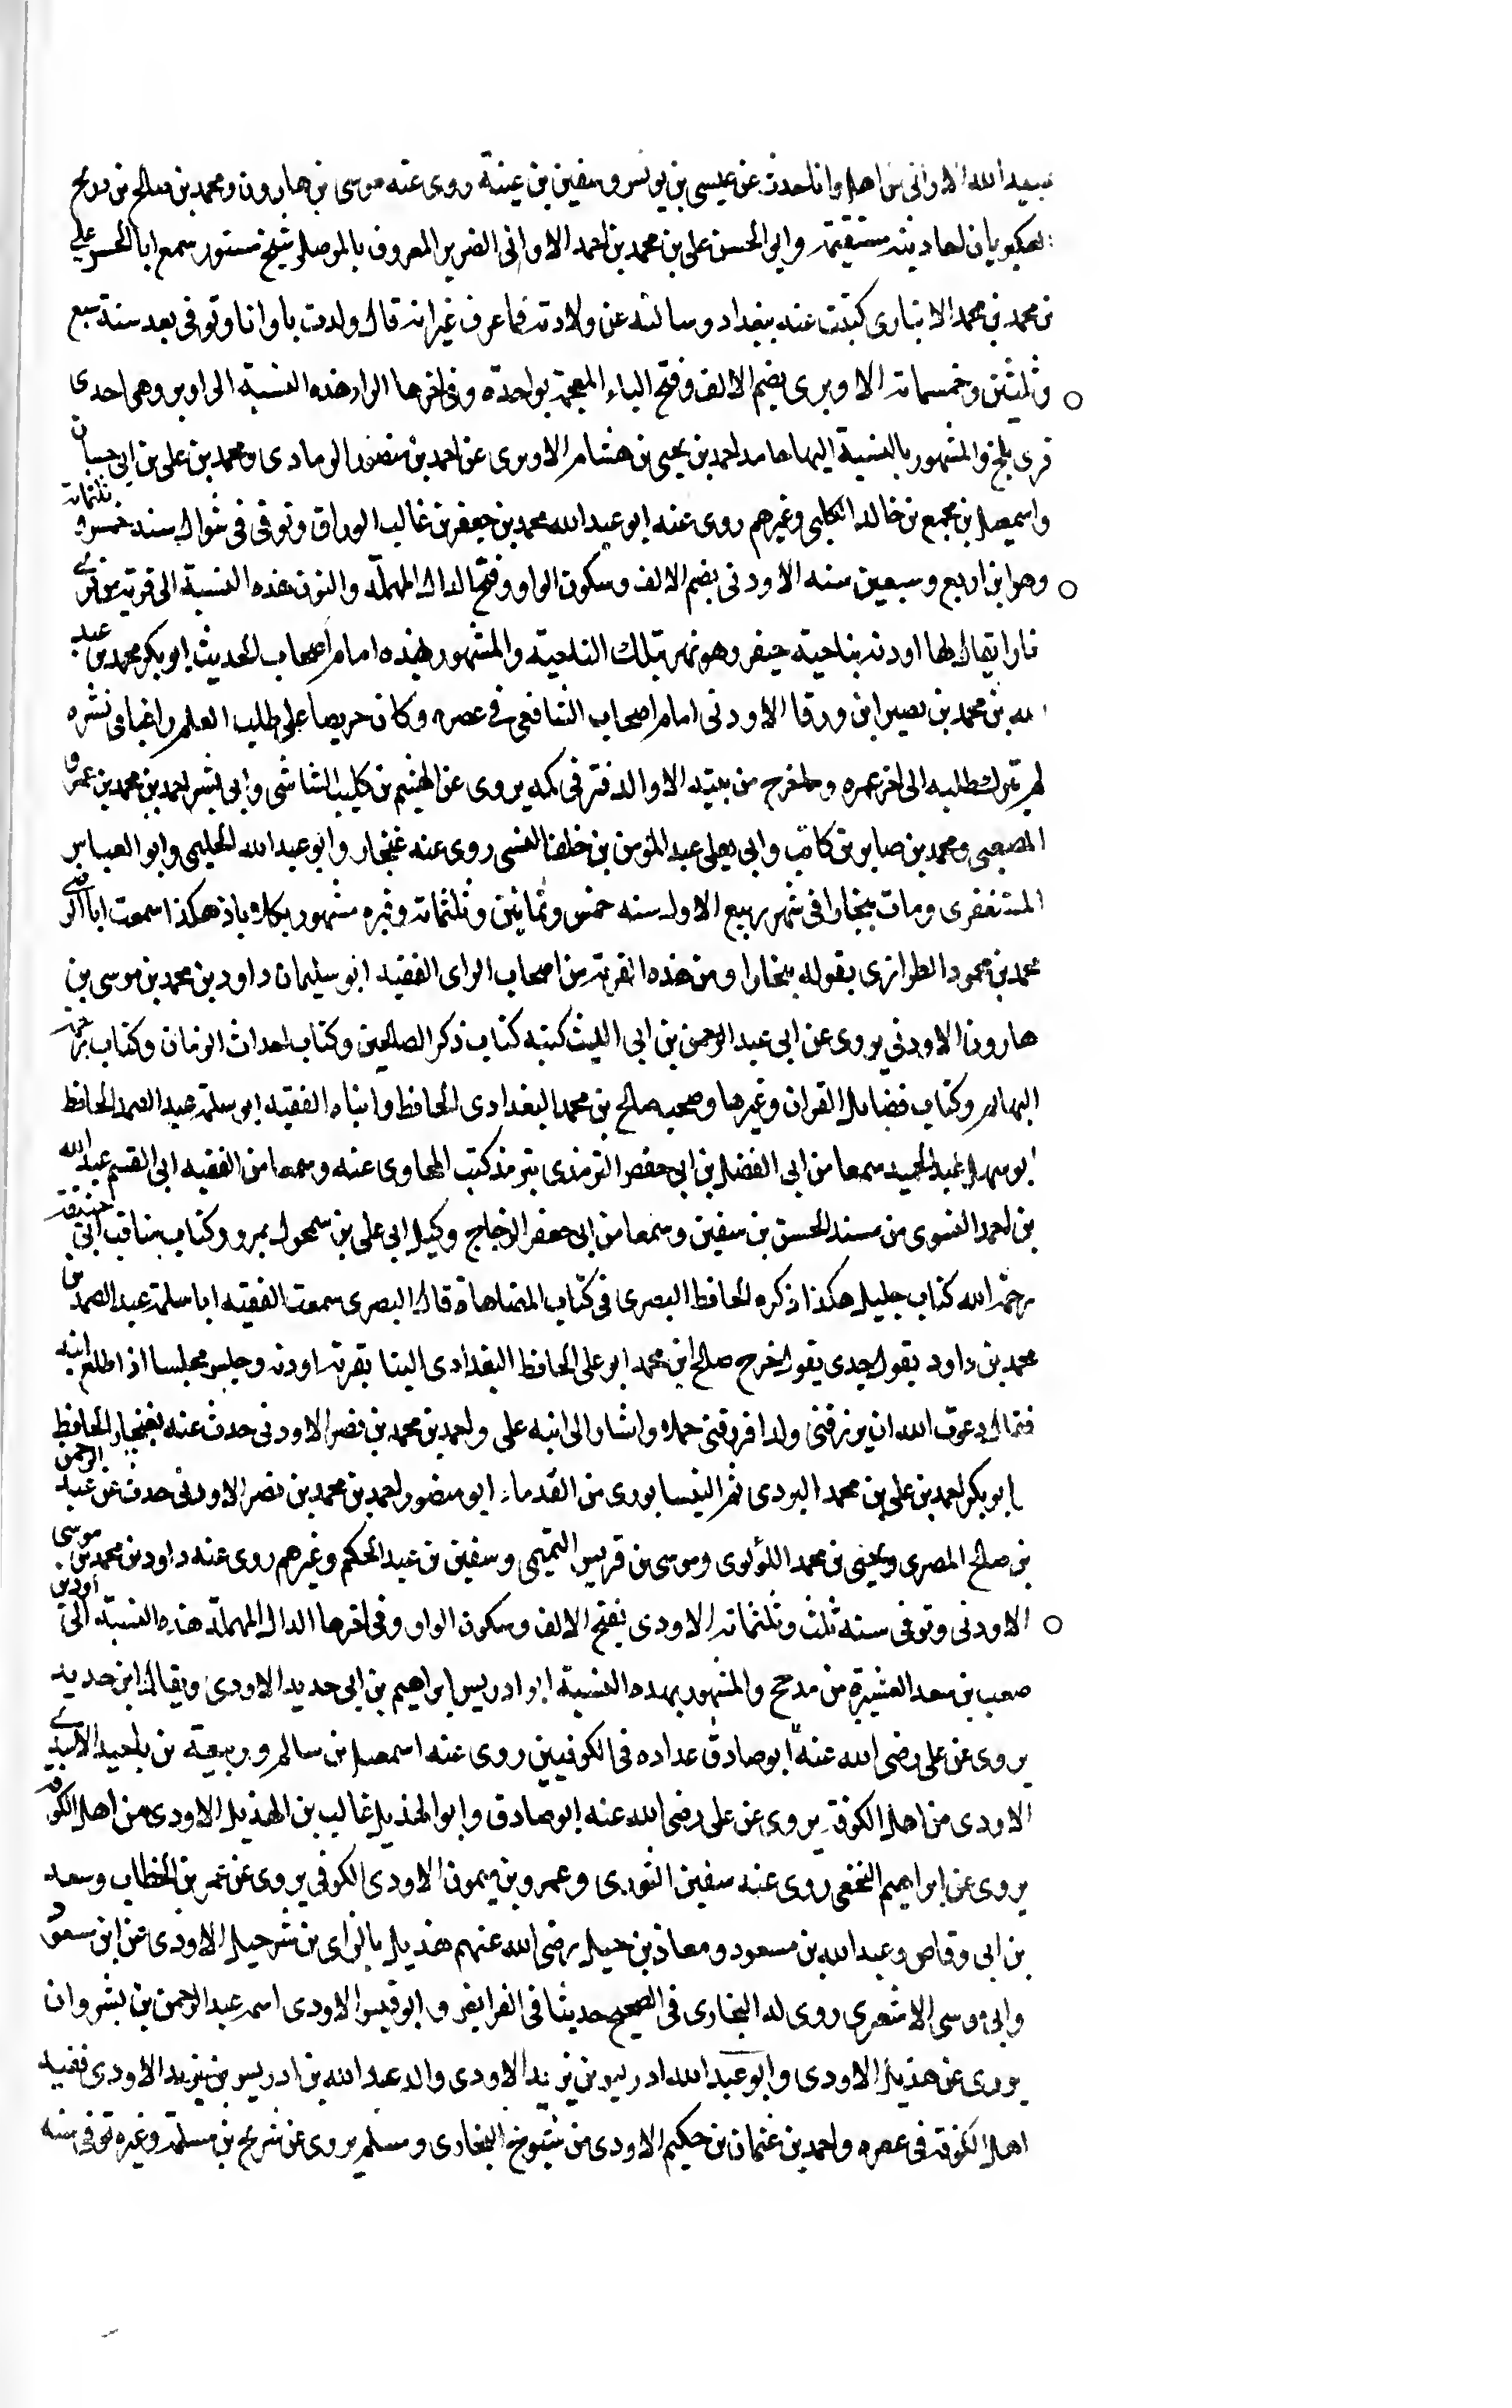 سعيد الله الاوانى من اهل اوانا حدث عن عيسى بن يونس وسفين بن عيينة روى عنه موسى بن هارون ومحمد بن صالح بن ذريح
العكبريان احاديثه مستقيمة وابى الحسن على بن محمد بن احمد الاوانى الضرير المعروف بالموصلى شيخ مستور سمع ابا الحسن على
بن محمد بن محمد الانبارى كتبت عنه ببغداد وسالته عن ولادته فما عرف غير انه قال ولدت باوانا وتوفى بعد سنة سبع
وثلثين وخمسمائة الاوبرى بضم الالف وفتح الباء المعجمة بواحدة وفى اخرها الراء هذه النسبة الى اوبر وهى احدى
قرى بلخ والمشهور بالنسبة اليها حامد احمد بن يحيى بن هشام الاوبرى عن احمد بن منصور الرمادى ومحمد بن على بن ابى حسان
واسمعيل بن مجمع بن خالد الكلبى وغيرهم روى عنه ابو عبد الله محمد بن جعفر بن غالب الوراق وتوفى فى شوال سنة خمس وثلثمائة
وهو ابن اربع وسبعين سنه الاودنى بضم الالف وسكون الواو وفتح الدال المهملة والنون هذه النسبة الى قرية من قرى
بخارا يقال لها اودنه بناحية وهو نهر بتلك الناحية والمشهور بهذه امام اصحاب الحديث ابو بكر محمد بن عبد
الله بن محمد بن بصير ابن ورقا الاودنى امام اصحاب الشافعى فى عصره وكان حريصا على طلب العلم راغبا فى نشره
لم يترك طلبه الى اخر عمره وما خرج من بيته الا والدفتر فى كمه يروى عن الهيثم بن كليب الشاشى وابى بشر احمد بن محمد بن عمرو
المصعبى ومحمد بن صابر بن كاتب وابى يعلى عبد المومن بن خلف النسفى روى عنه غنجار وابو عبد الله الحليمى وابو العباس
المستغفرى ومات ببخارا فى شهر ربيع الاول سنه خمس وثمانين وثلثمائة وقبره مشهور بكلاباذ هكذا سمعت ابا الرضى
محمد بن محمود الطرازى يقوله ببخارا ومن هذه القرية من اصحاب الراى الفقيه ابو سليمان داود بن محمد بن موسى بن
هارون الاودنى يروى عن ابى عبد الرحمن بن ابى الليث كتبه كتاب ذكر الصالحين وكتاب احداث الزمان وكتاب حرمة
البهائم وكتاب فضايل القران وغيرها وصحبه صالح بن محمد البغدادى الحافظ وابناه الفقيه ابو سلمة عبد الصمد الحافظ
ابو سهل عبد الحميد سمعا من ابى الفضل بن ابى حفص الترمذى بترمذ كتب الطحاوى عنه وسمعا من الفقيه ابى القسم عبد الله
بن احمد النسوى من مسند الحسن بن سفين وسمعا من ابى جعفر الزجاج وكيل ابى على بن سمحول بمرو وكتاب مناقب ابى حنيفة
رحمة الله كتاب جليل هكذا ذكره الحافظ البصرى فى كتاب المضاهاة قال البصرى سمعت الفقيه ابا سلمة عبد الصمد بن
محمد بن داود يقول جدى يقول خرج صالح ابن محمد ابو على الحافظ البغدادى الينا بقرية اودنه وجلس مجلسا اذ اطلع ابنه
فقال دعوت الله ان يرزقنى ولدا فرزقنى حمارا واشار الى ابنه على واحمد بن محمد بن نصر الاودنى حدث عنه غنجار الحافظ
ابو بكر احمد بن على بن محمد اليزدى ثم النيسابورى من القدماء ابو منصور احمد بن محمد بن نصر الاودنى حدث عن عبد الرحمن
بن صالح المصرى ويحيى بن محمد اللؤلوى وموسى بن قريس التميمى وسفين بن عبد الحكم وغيرهم روى عنه داود بن محمد بن موسى
الاودنى وتوفى سنه ثلث وثلثمائة الاودى بفتح الالف وسكون الواو وفى اخرها الدال المهملة هذه النسبة الى اود بن
صعب بن سعد العشيرة من مذحج والمشهور بهذه النسبة ابو ادريس ابراهيم بن ابى حديد الاودى ويقال ابن حديد
يروى عن على رضى الله عنه ابو صادق عداده فى الكوفيين روى عنه اسمعيل بن سالم وربيعة بن الاسدى
الاودى من اهل الكوفة يروى عن على رضى الله عنه ابو صادق وابو الهذيل غالب بن الهذيل الاودى من اهل الكوفة
يروى عن ابراهيم النخعى روى عنه سفين الثورى وعمرو بن ميمون الاودى الكوفى يروى عن عمر بن الخطاب وسعد
بن ابى وقاص وعبد الله بن مسعود ومعاذ بن جبل رضى الله عنهم هذيل بالزاى بن شرحبيل الاودى عن ابن مسعود
وابى موسى الاشعرى روى له البخارى فى الصحيح حديثا فى الفرايض وابو قيس الاودى اسمه عبد الرحمن بن ثروان
يروى عن هذيل الاودى وابو عبد الله ادريس بن يزيد الاودى والد عبد الله بن ادريس بن يزيد الاودى فقيه
اهل الكوفة فى عصره واحمد بن عثمان بن حكيم الاودى من شيوخ البخارى ومسلم يروى عن شريح بن مسلمة وغيره توفى سنه